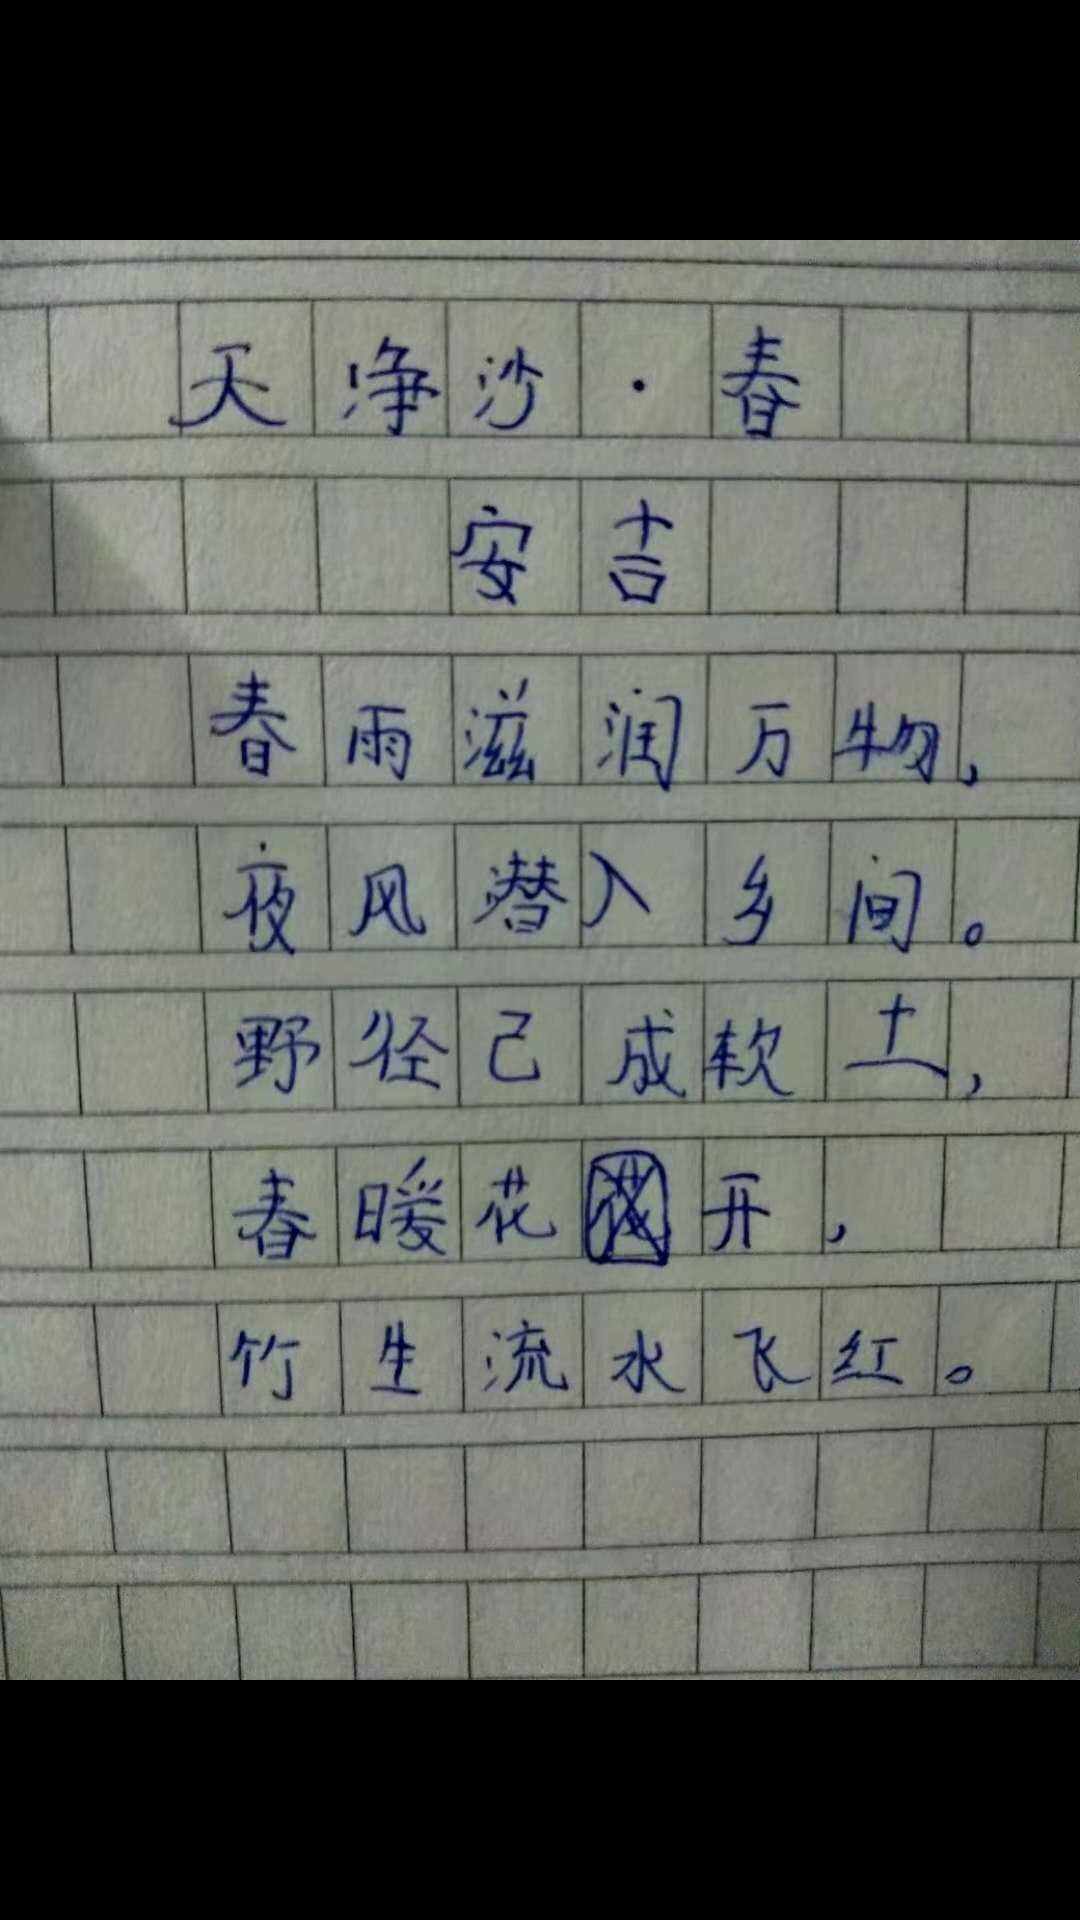 天净沙·春
安吉
春雨滋润万物，
夜风潜入乡间。
野径己成软土，
春暖花开，
竹生流水飞红。